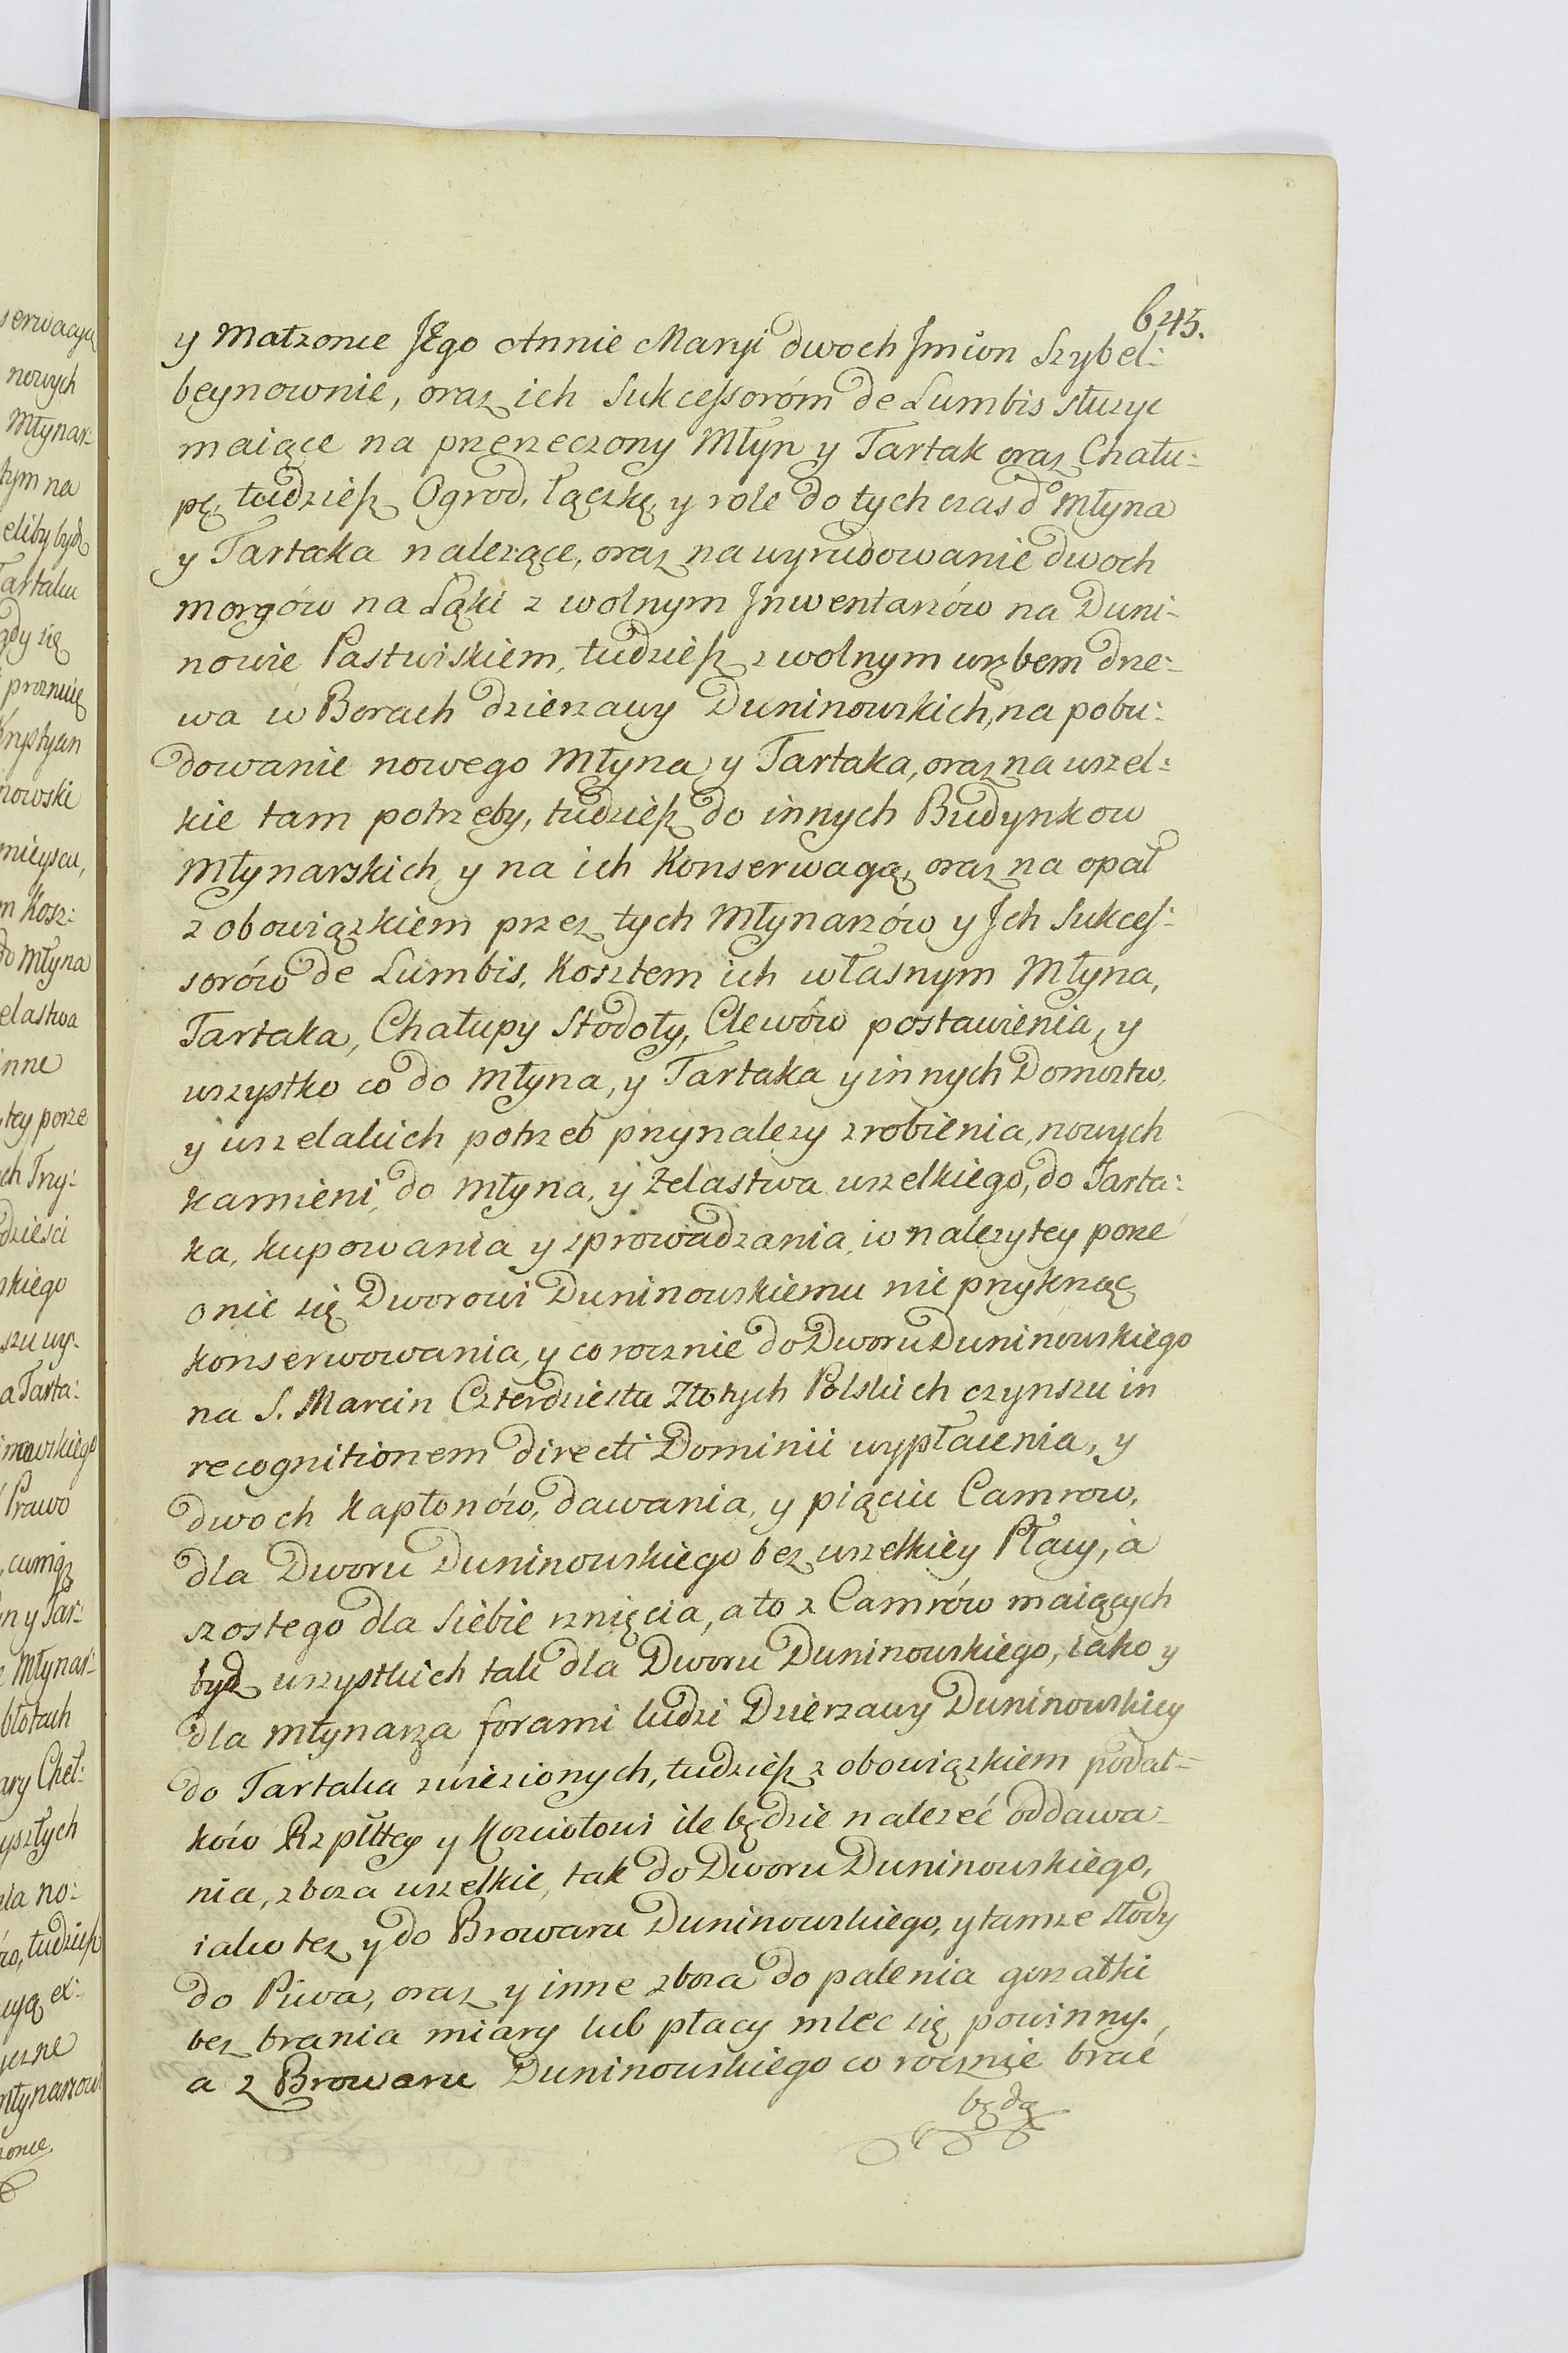 645.
y Małzonce Jego Annie Maryi dwoch Jmion Szybel:
beynownie, oraz ich Sukcessoróm de Lumbis słuzyc
maiące na przerzeczony Młyn y Tartak oraz Chału:
pę, tudziesz Ogrod, łączkę, y role do tych czas do Młyna
y Tartaka nalezące, oraz na wyrudowanie dwoch
morgów na Łąki z wolnym Jnwentarzów na Duni-
nowie Pastwiskiem, tudziesz z wolnym wrębem drze:
wa w Borach dzierzawy Duninowskich, na pobu:
dowanie nowego Młyna y Tartaka, oraz na wszel:
kie tam potrzeby, tudziesz do innych Budynkow
Młynarskich y na ich Konserwacyą, oraz na opał
z obowiązkiem przez tych Młynarzów y Jch Sukces:
sorów de Lumbis, Kosztem ich własnym Młyna,
Tartaka, Chałupy Stodoły, Clewów postawienia, y
wszystko co do Młyna, y Tartaka y innych Domostw,
y wszelakich potrzeb przynalezy zrobienia, nowych
kamieni, do Młyna, y Zelastwa wszelkiego, do Tarta:
ka, kupowania y zprowadzania, w nalezytey porze
o nic się Dworowi Duninowskiemu nie przykrząc
konserwowania, y co rocznie do Dworu Duninowskiego
na S. Marcin Czterdziesta Złotych Polskich czynszu in
recognitionem directi Dominii wypłacenia, y
dwoch Kapłonów, dawania, y piąciu Camrow,
dla Dworu Duninowskiego bez wszelkiey Płacy, a
szostego dla siebie rznięcia, a to z Camrów maiących
bydz wszystkich tak dla Dworu Duninowskiego, iako y
dla Młynarza forami ludzi Dzierzawy Duninowskiey
do Tartaka zwiezionych, tudziesz z obowiązkiem podat-
ków Rzpłttey y Kosciołowi ile będzie nalezeć oddawa-
nia, zboza wszelkie, tak do Dworu Duninowskiego,
iako tez y do Browaru Duninowskiego, y tamze słody
do Piwa, oraz y inne zboza do palenia gorzałki
bez brania miary lub płacy mlec się powinny.,
a z Browaru Duninowskiego co rocznie brać
będą